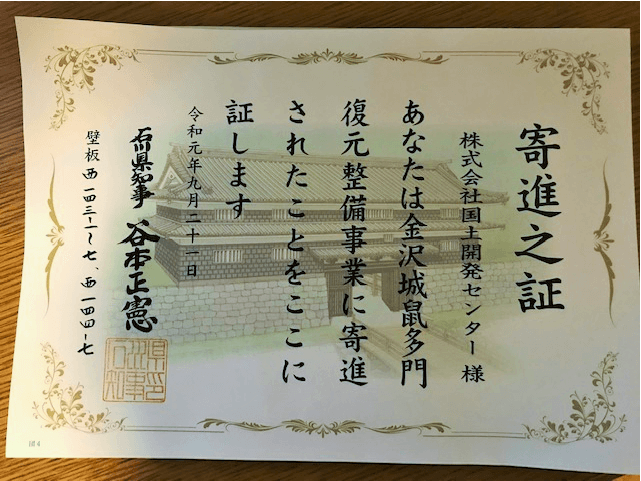 寄進之証
株式会社国土開発センター様
あなたは金沢城鼠多門
復元整備事業に寄進
されたことをここに
証します
令和元年九月二十一日
石川県知事 谷本正憲
壁板西一四三-一〜七、西一四四-七